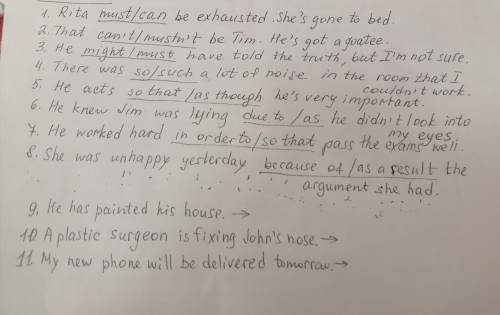 1. Rita must/can be exhausted. She's gone to bed.
2. That can't/mustn't be Tim. He's got a goatee.
3. He might/must have told the truth, but I'm not sure.
4. There was so/such a lot of noise in the room that I
couldn't work.
5. He acts so that/as though he's very important.
6. He knew Jim was lying due to/as he didn't look into
my eyes.
7. He worked hard in order to/so that pass the exams well.
8. She was unhappy yesterday because of/as a result the
argument she had.
9. He has painted his house. →
10. A plastic surgeon is fixing John's nose. →
11. My new phone will be delivered tomorrow. →